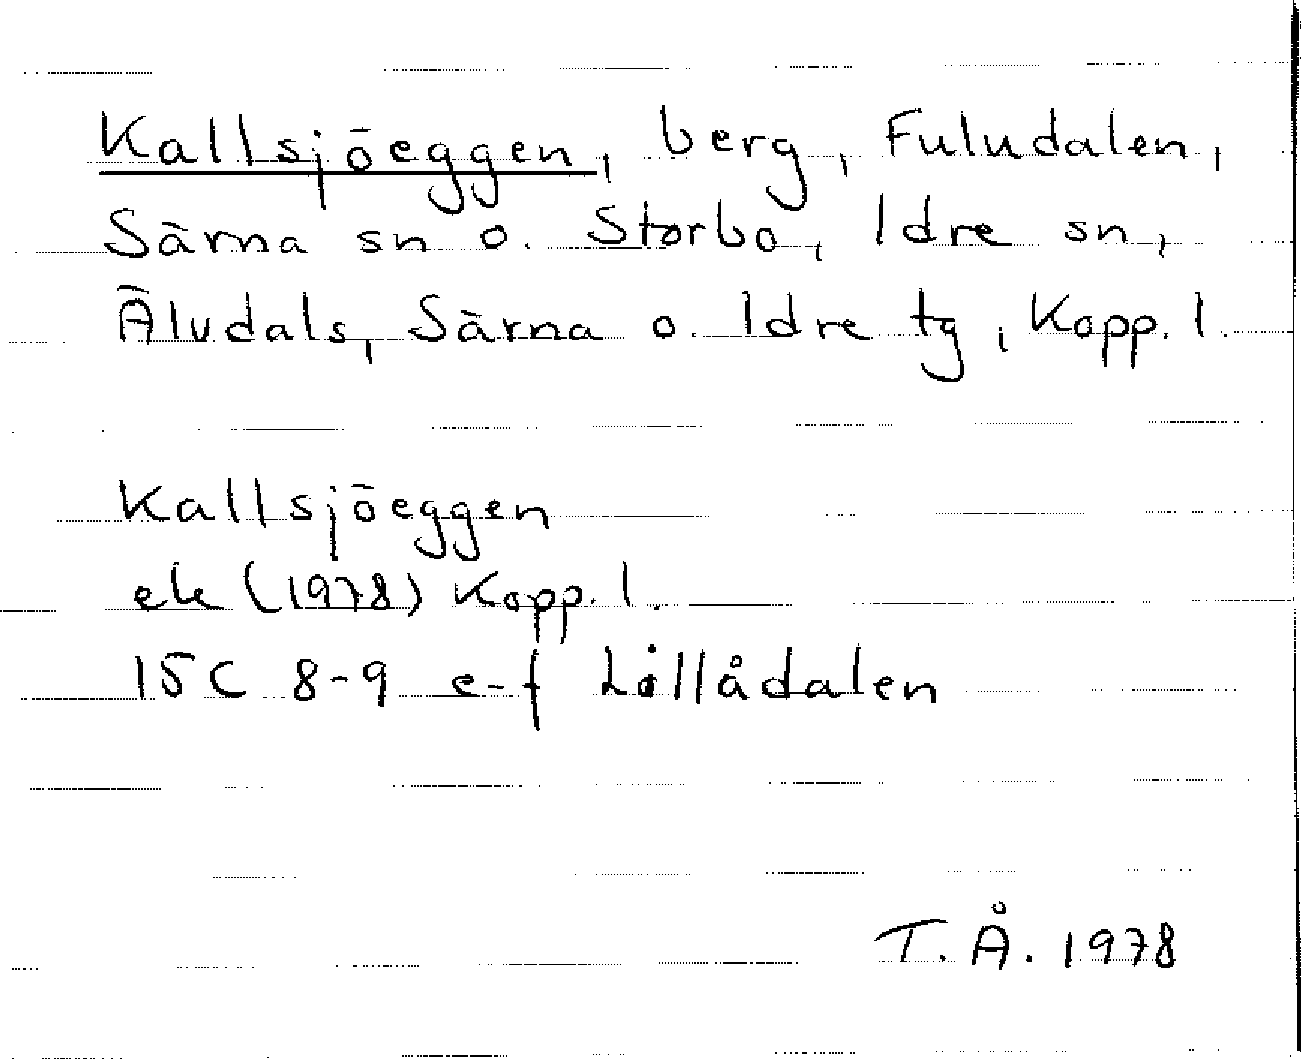 Kallsjöeggen, berg, Fuludalen,
Särna sn o. Storbo, Idre sn,
Älvdals, Särna o. Idre tg, Kopp. l.
Kallsjöeggen
ek (1978) Kopp. l.
15C 8-9 e-f Lillådalen
T. Å. 1978